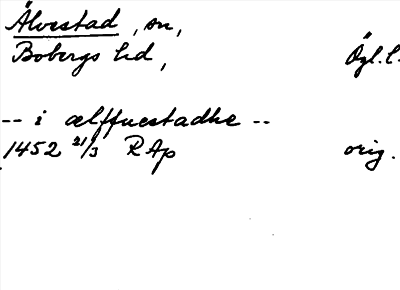 Älvestad, sn,
Bobergs hd, Ögl. l.
-- i ælffuestadhe --
1452 21/3 RAp orig.